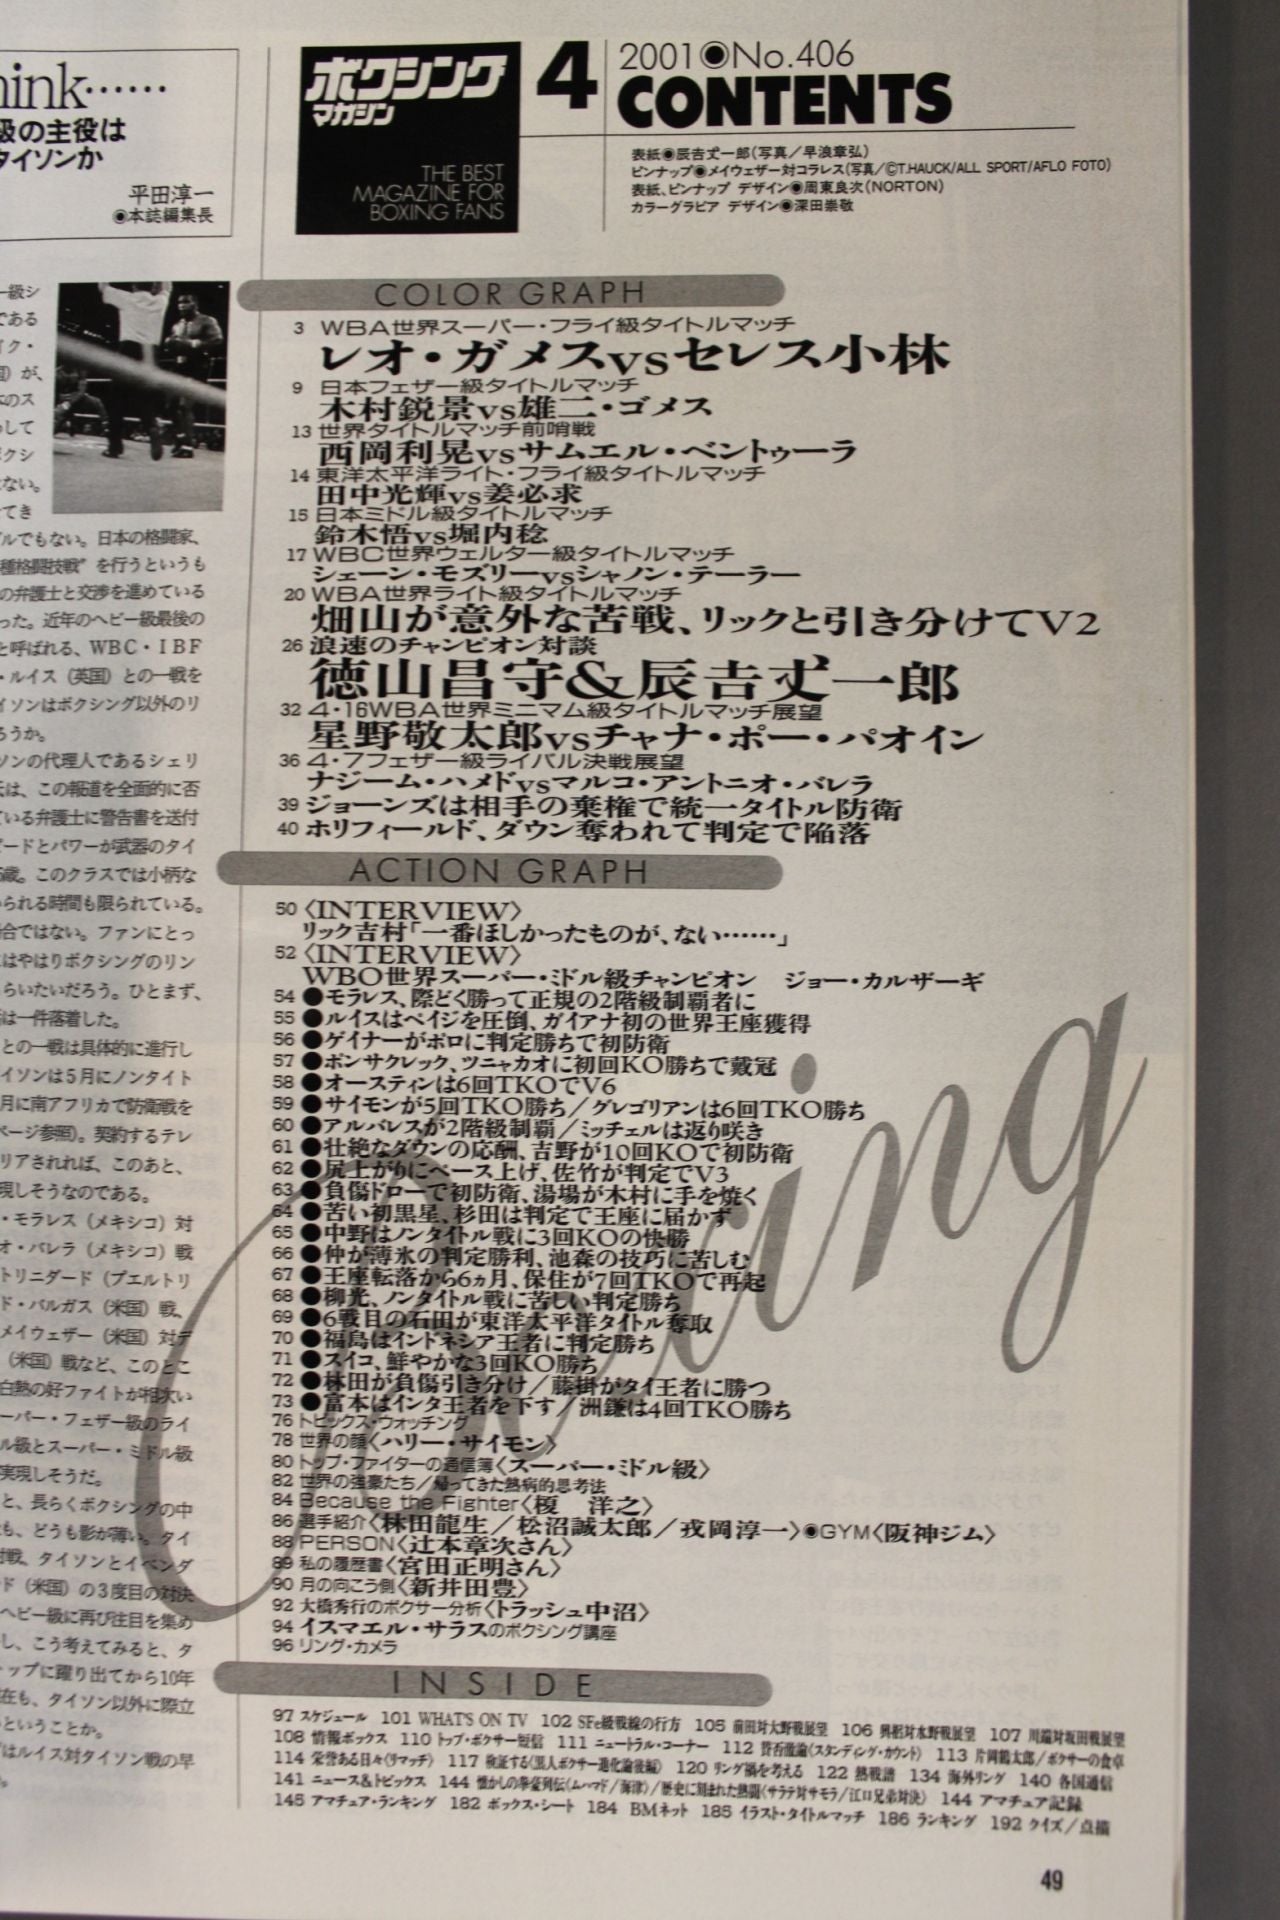 hink……
級の主役は
タイソンか
平田淳一
◉本誌編集長
ー級シ
である
イク・
が、
本のス
して
ボクシ
ない。
てき
ルでもない。日本の格闘家、
種格闘技戦"を行うというも
の弁護士と交渉を進めている
った。近年のヘビー級最後の
と呼ばれる、WBC・IBF
・ルイス(英国)との一戦を
イソンはボクシング以外のリ
ろうか。
ソンの代理人であるシェリ
氏は、この報道を全面的に否
ている弁護士に警告書を送付
ピードとパワーが武器のタイ
歳。このクラスでは小柄な
られる時間も限られている。
合ではない。ファンにとっ
はやはりボクシングのリン
らいたいだろう。ひとまず、
は一件落着した。
との一戦は具体的に進行し
イソンは5月にノンタイト
月に南アフリカで防衛戦を
ページ参照)。契約するテレ
リアされれば、このあと、
現しそうなのである。
・モラレス(メキシコ)対
オ・バレラ(メキシコ)戦
トリニダード(プエルトリ
ド・バルガス(米国)戦、
メイウェザー(米国)対デ
(米国)戦など、このとこ
白熱の好ファイトが相次い
ーパー・フェザー級のライ
ル級とスーパー・ミドル級
実現しそうだ。
と、長らくボクシングの中
も、どうも影が薄い。タイ
対戦、タイソンとイベンダ
ド(米国)の3度目の対決
ヘビー級に再び注目を集め
し、こう考えてみると、タ
ップに躍り出てから10年
在も、タイソン以外に際立
ということか。
はルイス対タイソン戦の早
ボクシング
マガジン
THE BEST
MAGAZINE FOR
BOXING FANS
4
2001◉No.406
CONTENTS
表紙◉辰吉丈一郎(写真/早浪章弘)
ピンナップ◉メイウェザー対コラレス(写真/©T.HAUCK/ALL SPORT/AFLO FOTO)
表紙、ピンナップ デザイン◉周東良次(NORTON)
カラーグラビア デザイン◉深田崇敬
COLOR GRAPH
3 WBA世界スーパー・フライ級タイトルマッチ
レオ・ガメスvsセレス小林
9 日本フェザー級タイトルマッチ
木村鋭景vs雄二・ゴメス
13 世界タイトルマッチ前哨戦
西岡利晃vsサムエル・ベントゥーラ
14 東洋太平洋ライト・フライ級タイトルマッチ
田中光輝vs姜必求
15 日本ミドル級タイトルマッチ
鈴木悟vs堀内稔
17 WBC世界ウェルター級タイトルマッチ
シェーン・モズリーvsシャノン・テーラー
20 WBA世界ライト級タイトルマッチ
畑山が意外な苦戦、リックと引き分けてV2
26 浪速のチャンピオン対談
徳山昌守&辰吉丈一郎
32 4・16WBA世界ミニマム級タイトルマッチ展望
星野敬太郎vsチャナ・ポー・パオイン
36 4・7フェザー級ライバル決戦展望
ナジーム・ハメドvsマルコ・アントニオ・バレラ
39 ジョーンズは相手の棄権で統一タイトル防衛
40 ホリフィールド、ダウン奪われて判定で陥落
ACTION GRAPH
50〈INTERVIEW〉
リック吉村「一番ほしかったものが、ない……」
52〈INTERVIEW〉
WBO世界スーパー・ミドル級チャンピオン ジョー・カルザーギ
54 ●モラレス、際どく勝って正規の2階級制覇者に
55 ●ルイスはペイジを圧倒、ガイアナ初の世界王座獲得
56 ●ゲイナーがポロに判定勝ちで初防衛
57 ●ポンサクレック、ツニャカオに初回KO勝ちで戴冠
58 ●オースティンは6回TKOでV6
59 ●サイモンが5回TKO勝ち/グレゴリアンは6回TKO勝ち
60 ●アルバレスが2階級制覇/ミッチェルは返り咲き
61 ●壮絶なダウンの応酬、吉野が10回KOで初防衛
62 ●尻上がりにペース上げ、佐竹が判定でV3
63 ●負傷ドローで初防衛、湯場が木村に手を焼く
64 ●苦い初黒星、杉田は判定で王座に届かず
65 ●中野はノンタイトル戦に3回KOの快勝
66 ●仲が薄氷の判定勝利、池森の技巧に苦しむ
67 ●王座転落から6ヵ月、保住が7回TKOで再起
68 ●柳光、ノンタイトル戦に苦しい判定勝ち
69 ●6戦目の石田が東洋太平洋タイトル奪取
70 ●福島はインドネシア王者に判定勝ち
71 ●スイコ、鮮やかな3回KO勝ち
72 ●林田が負傷引き分け/藤掛がタイ王者に勝つ
73 ●富本はインタ王者を下す/洲鎌は4回TKO勝ち
76 トピックス・ウォッチング
78 世界の顔〈ハリー・サイモン〉
80 トップ・ファイターの通信簿〈スーパー・ミドル級〉
82 世界の強豪たち/帰ってきた熱病的思考法
84 Because the Fighter〈榎 洋之〉
86 選手紹介〈林田龍生/松沼誠太郎/戎岡淳一〉◉GYM〈阪神ジム〉
88 PERSON〈辻本章次さん〉
89 私の履歴書〈宮田正明さん〉
90 月の向こう側〈新井田豊〉
92 大橋秀行のボクサー分析〈トラッシュ中沼〉
94 イスマエル・サラスのボクシング講座
96 リング・カメラ
Boxing
INSIDE
97 スケジュール 101 WHAT'S ON TV 102 SFe級戦線の行方 105 前田対大野戦展望 106 興招対水野戦展望 107 川端対坂田戦展望
108 情報ボックス 110 トップ・ボクサー短信 111 ニュートラル・コーナー 112 賛否激論〈スタンディング・カウント〉 113 片岡鶴太郎/ボクサーの食卓
114 栄誉ある日々〈リマッチ〉 117 検証する〈黒人ボクサー進化論後編〉 120 リング禍を考える 122 熱戦譜 134 海外リング 140 各国通信
141 ニュース&トピックス 144 懐かしの拳豪列伝〈ムハマド/海津〉/歴史に刻まれた熱闘〈サラテ対サモラ/江口兄弟対決〉 144 アマチュア記録
145 アマチュア・ランキング 182 ボックス・シート 184 BMネット 185 イラスト・タイトルマッチ 186 ランキング 192 クイズ/点描
49